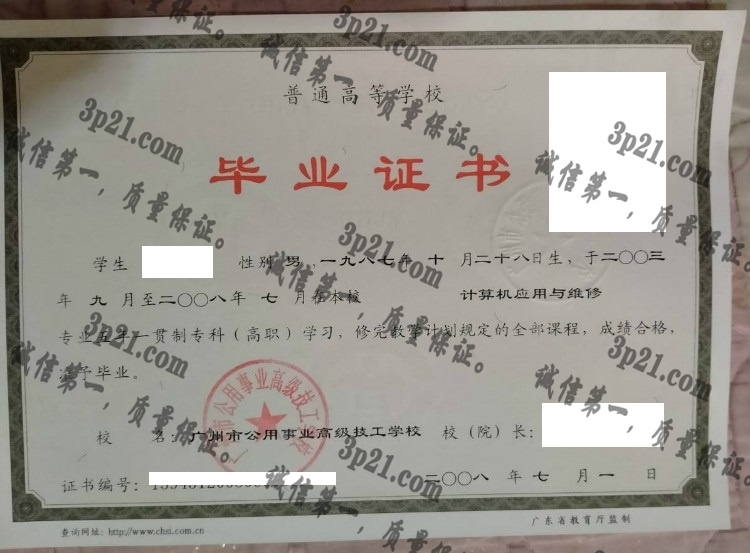 普通高等学校
毕业证书
学生 性别 男，一九八七年 十 月二十八日生，于二〇〇三
年 九 月至二〇〇八年 七 月在本校 计算机应用与维修
专业五年一贯制专科（高职）学习，修完教学计划规定的全部课程，成绩合格，
准予毕业。
校 名：广州市公用事业高级技工学校 校（院）长：
证书编号：
二〇〇八 年 七 月 一 日
查询网址：http://www.chsi.com.cn
广东省教育厅监制
广州市公用事业高级技工学校
3p21.com
诚信第一，质量保证。
3p21.com
诚信第一，质量保证。
3p21.com
诚信第一，质量保证。
3p21.com
诚信第一，质量保证。
3p21.com
诚信第一，质量保证。
3p21.com
诚信第一，质量保证。
3p21.com
诚信第一，质量保证。